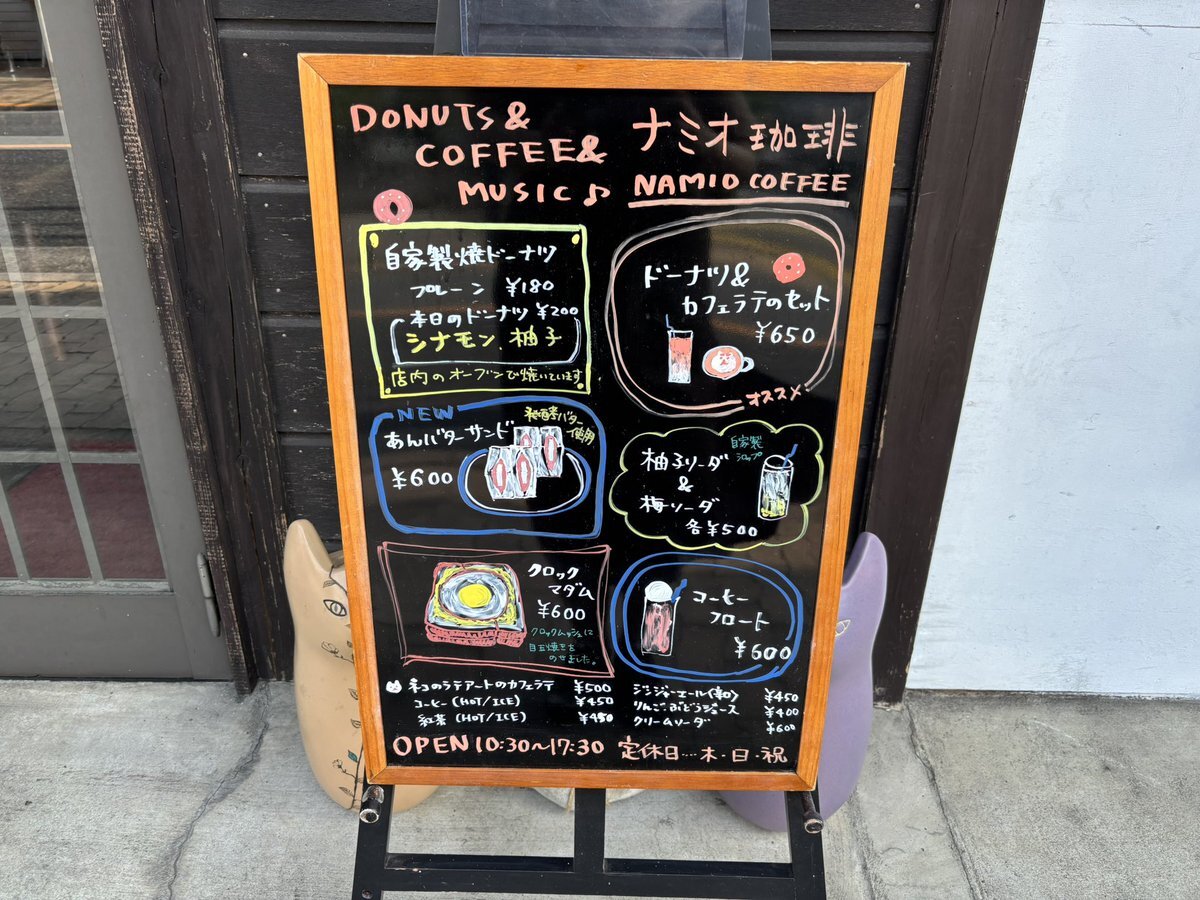 DONUTS &
COFFEE &
MUSIC ♪
ナミオ珈琲
NAMIO COFFEE
自家製焼ドーナツ
プレーン ¥180
本日のドーナツ ¥200
シナモン 柚子
店内のオーブンで焼いています
ドーナツ&
カフェラテのセット
¥650
オススメ
NEW
あんバターサンド
発酵バター
使用
¥600
柚子ソーダ
&
梅ソーダ
各¥500
自家製
シロップ
クロック
マダム
¥600
クロックムッシュに
目玉焼きを
のせました。
コーヒー
フロート
¥600
ネコのラテアートのカフェラテ ¥500
コーヒー (HOT/ICE) ¥450
紅茶 (HOT/ICE) ¥450
ジンジャーエール(辛口) ¥450
りんご・ぶどうジュース ¥400
クリームソーダ ¥600
OPEN 10:30~17:30 定休日…木・日・祝